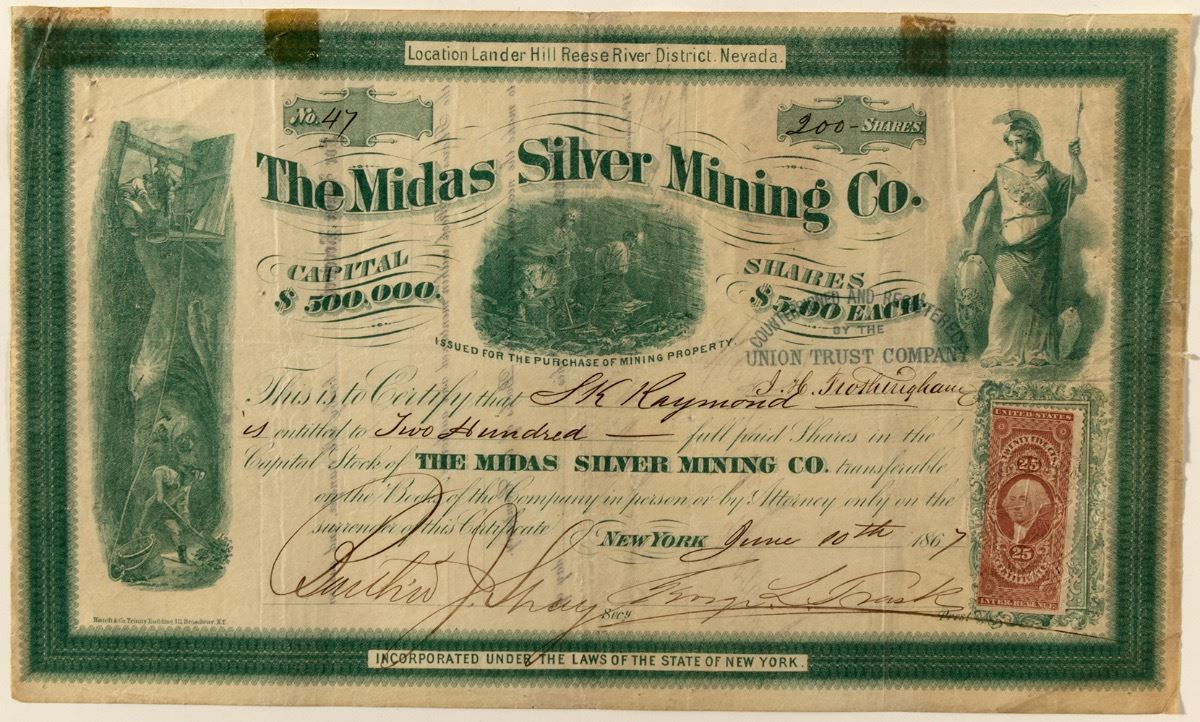 Location Lander Hill Reese River District. Nevada.
No. 47
200 - SHARES
The Midas Silver Mining Co.
CAPITAL
$ 500,000.
SHARES
$5.00 EACH
ISSUED FOR THE PURCHASE OF MINING PROPERTY.
COUNTERSIGNED AND REGISTERED
BY THE
UNION TRUST COMPANY
J. H. Frothingham
This is to Certify that S K Raymond
is entitled to Two Hundred — full paid Shares in the
Capital Stock of THE MIDAS SILVER MINING CO. transferable
on the Books of the Company in person or by Attorney only on the
surrender of this Certificate
NEW YORK June 10th 1867
UNITED STATES
TWENTY FIVE
25
25
INTER. REVENUE
J. Shay Secy
Geo. L. Trask Prest
& Co. Trinity Building, 111 Broadway, N.Y.
INCORPORATED UNDER THE LAWS OF THE STATE OF NEW YORK.